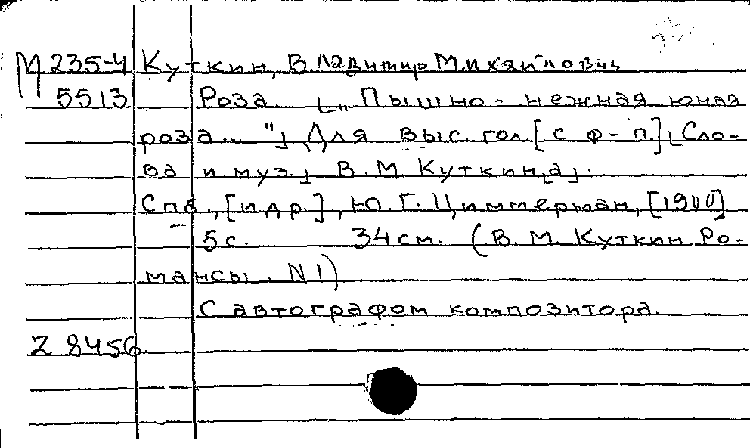 М 235-4 Куткин, Владимир Михайлович
5513 Роза. [„Пышно-нежная юная
роза..."] Для выс. гол. [с ф-п.] [Сло-
ва и муз.] В. М. Куткин[а].
Спб., [и др.], Ю. Г. Циммерман, [1900]
5 с. 34 см. (В. М. Куткин Ро-
мансы. N 1)
С автографом композитора.
Z 8456